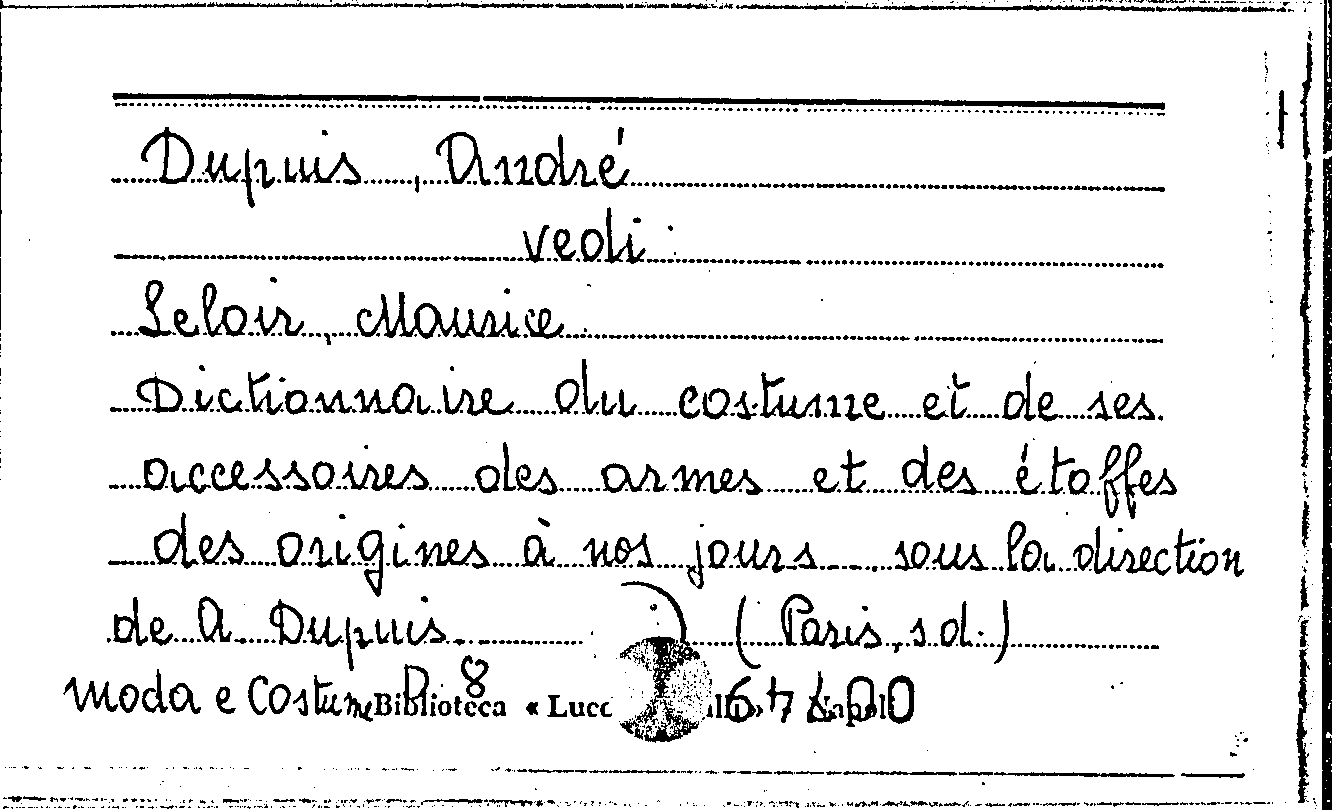 Dupuis, André
vedi:
Leloir, Maurice
Dictionnaire du costume et de ses
accessoires des armes et des étoffes
des origines à nos jours... sous la direction
de A. Dupuis. (Paris, s.d.)
Moda e Costume Biblioteca « Lucc